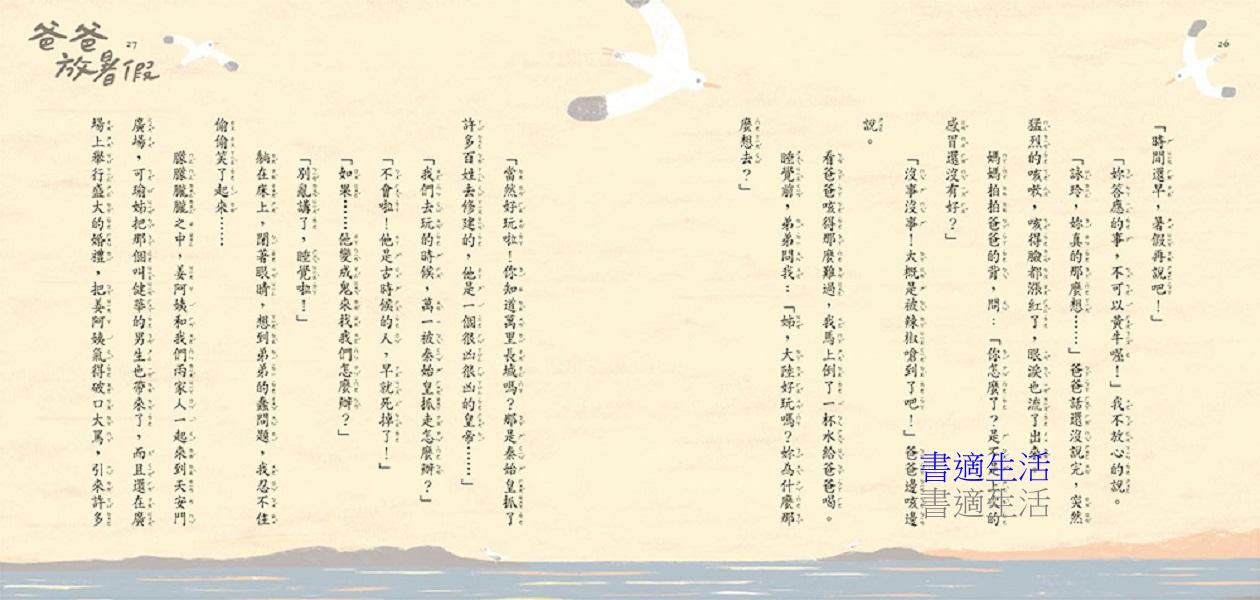 26
「時間還早，暑假再說吧！」
「妳答應的事，不可以黃牛喔！」我不放心的說。
「詠玲，妳真的那麼想……」爸爸話還沒說完，突然
猛烈的咳嗽，咳得臉都漲紅了，眼淚也流了出來。
媽媽拍拍爸爸的背，問：「你怎麼了？是不是上次的
感冒還沒有好？」
「沒事沒事！大概是被辣椒嗆到了吧！」爸爸邊咳邊
說。
看爸爸咳得那麼難過，我馬上倒了一杯水給爸爸喝。
睡覺前，弟弟問我：「姊，大陸好玩嗎？妳為什麼那
麼想去？」
「當然好玩啦！你知道萬里長城嗎？那是秦始皇抓了
許多百姓去修建的，他是一個很凶很凶的皇帝……」
「我們去玩的時候，萬一被秦始皇抓走怎麼辦？」
「不會啦！他是古時候的人，早就死掉了！」
「如果……他變成鬼來找我們怎麼辦？」
「別亂講了，睡覺啦！」
躺在床上，閉著眼睛，想到弟弟的蠢問題，我忍不住
偷偷笑了起來……
朦朦朧朧之中，姜阿姨和我們兩家人一起來到天安門
廣場，可瑜姊把那個叫健華的男生也帶來了，而且還在廣
場上舉行盛大的婚禮，把姜阿姨氣得破口大罵，引來許多
爸爸
放暑假
27
書適生活
書適生活